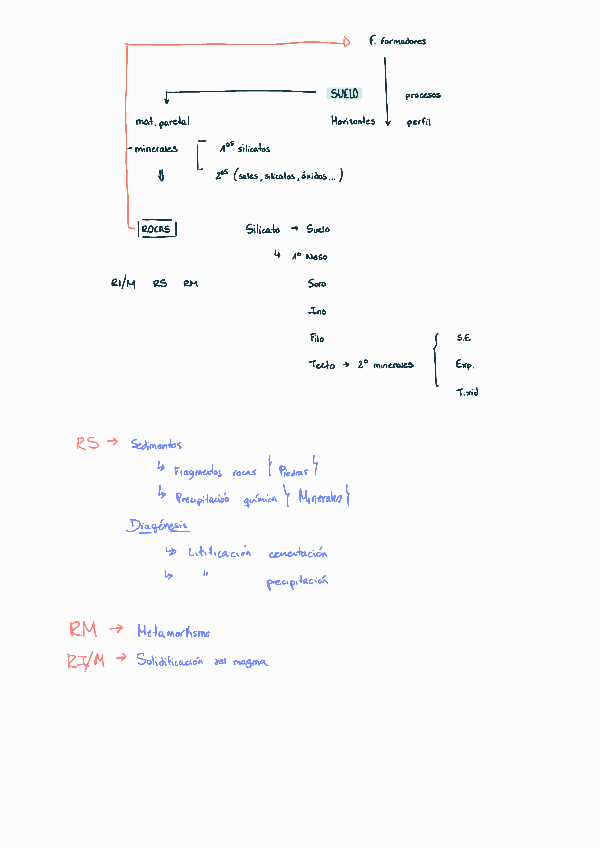 F. formadores
SUELO procesos
mat. paretal Horizontes perfil
minerales 1ºˢ silicatos
2ºˢ (sales, silicatos, óxidos...)
ROCAS Silicato → Suelo
↳ 1º Neso
RI/M RS RM Soro
Ino
Filo
Tecto → 2º minerales
S.E
Exp.
T.xid
RS → Sedimentos
↳ Fragmentos rocas { Piedras }
↳ Precipitació química { Minerales }
Diagénesis
↳ Litificación cementación
↳ " precipitación
RM → Metamorfismo
RI/M → Solidificación del magma